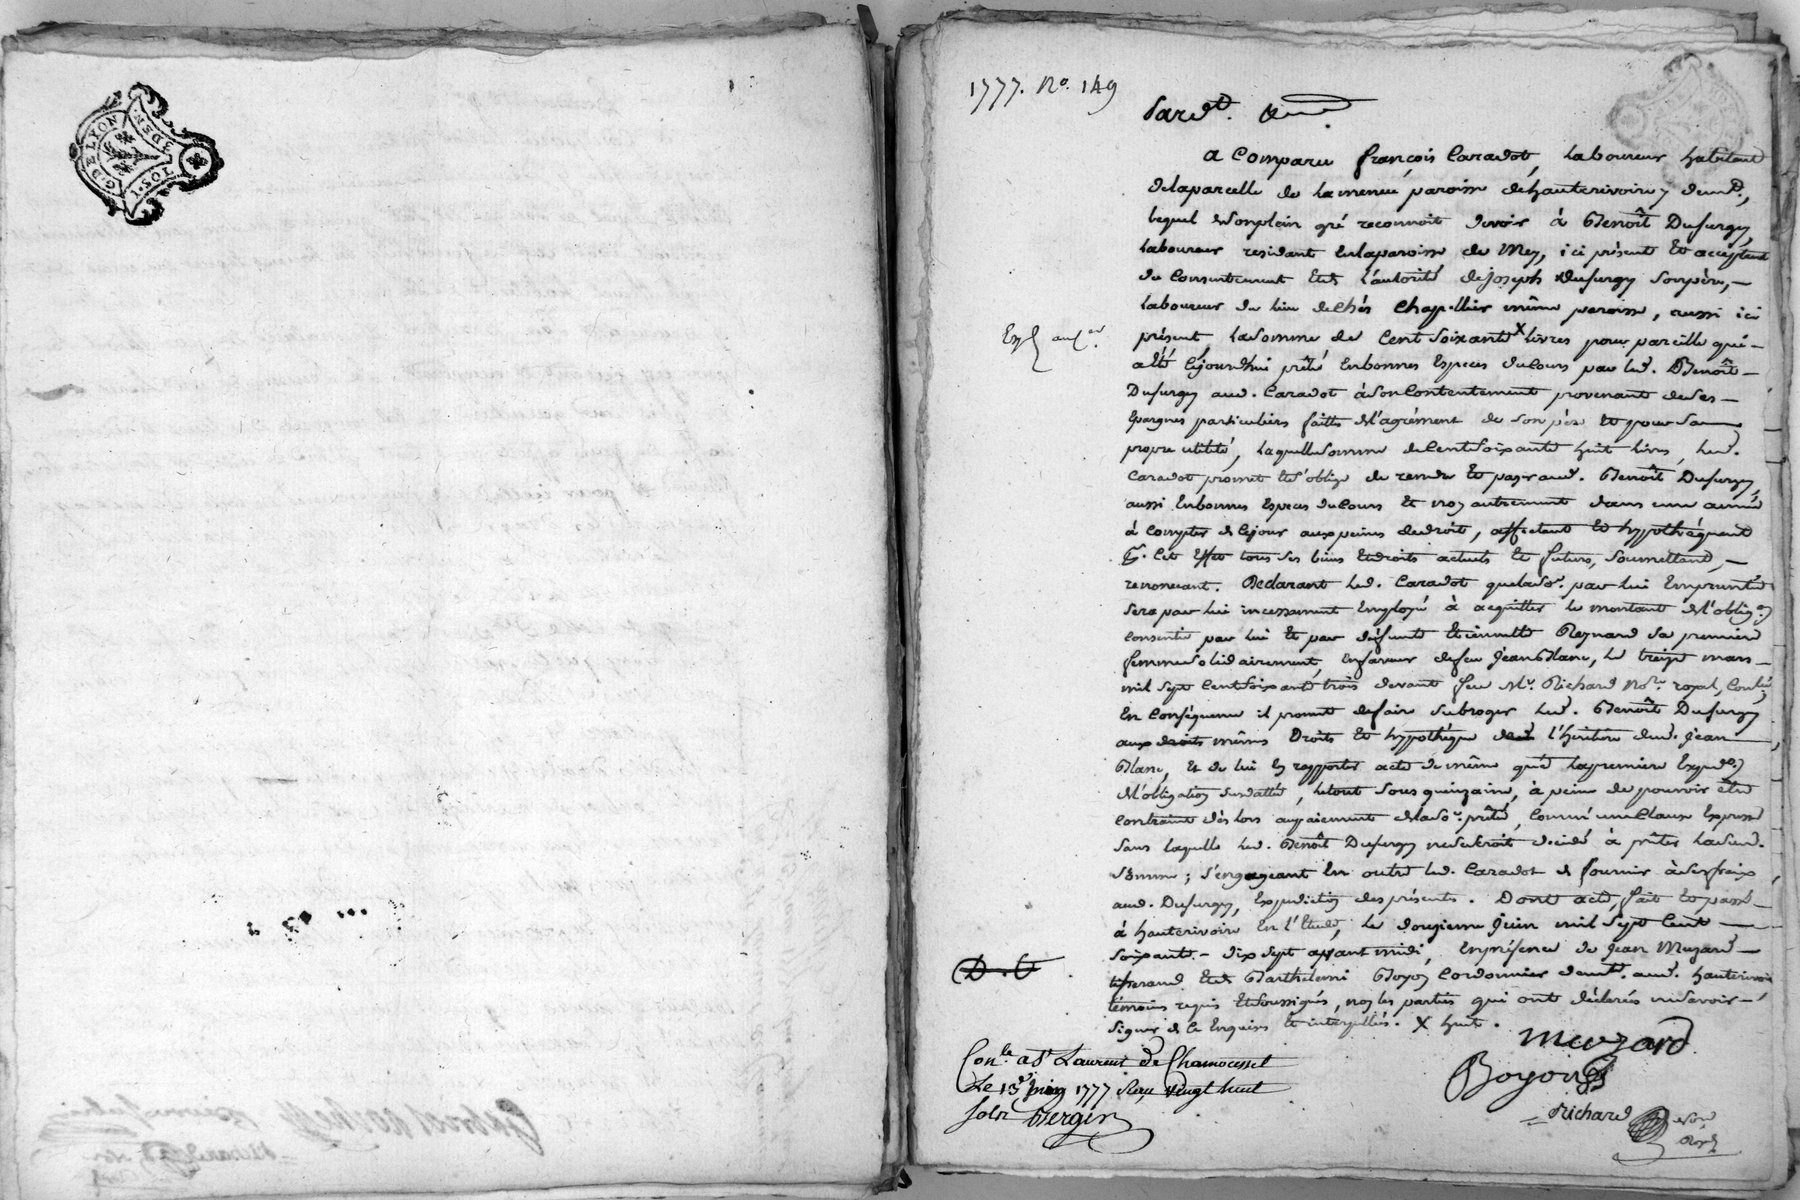 G. DE LYON
2 DEN.
1777. No. 149
Pard.t &
a Comparu françois Caradot, laboureur habitant
dela parcelle de paroisse d'hauterivoire y demt.,
lequel deson plein gré reconnoit devoir à Benoît Dufurgy,
laboureur residant en la paroisse de Mey, ici présent et acceptant
du Consentement et de l'autorité de joseph Dufurgy son père, —
laboureur du lieu de chés Chapellier même paroisse, aussi ici
Exp
présent, la somme de Cent soixante x livres pour pareille qui —
a été cejourd'hui prêté en bonnes Especes du Cours par led. Benoît —
Dufurgy aud. Caradot à son Contentement provenant de ses —
Epargnes particuliers faitts de l'agrément de son père et pour sa
propre utilité, laquelle somme de Cent soixante huit livres, led.
Caradot promet et s'oblige de rendre et payer aud. Benoît Dufurgy,
aussi en bonnes Especes du Cours et noy autrement dans une année
à compter de ce jour aux peines de droit, affectant et hypothéquant
Cet Effet tous ses biens et droits actuels et futurs, soumettant, —
renoncant. Declarant led. Caradot que la so. par lui Emprunté
sera par lui incessament Employé à acquitter le montant de l'oblig.
Consentie par lui et par défunte Etiennette Reynard sa premiere
femme solidairement, en faveur de feu jean Blanc, le treize mars —
mil sept Cent soixante trois devant feu Me. Richard No.re royal, Conlé,
En Conséquence il promet de faire subroger led. Benoît Dufurgy
aux droits mêmes Droits et hypothéque de l'héritiere dud. jean
Blanc, et de lui En rapporter acte de même que la premiere Expedo.
de l'obligation susdattée, le tout sous quinzaine, à peine de pouvoir être
Contraint dès lors au paiement de la so. prêté, Comme une Clause Expresse
sans laquelle led. Benoît Dufurgy ne se seroit décidé à prêter lad.
somme; s'engageant En outre led. Caradot de fournir à ses fraix
aud. Dufurgy, Expedition des présentes. Dont acte, fait et passé —
à hauterivoire En l'Etude, le douzieme juin mil sept Cent —
soixante-dix sept avant midi, En présence de jean Muzard —
D. C.
tisserand et de Barthelemi Boyoy Cordonnier demt. aud. hauterivoire
témoins requis et soussignés, noy les parties qui ont déclarés ne savoir —
signer de Ce Enquises et interpellés. x huit.
Muzard
Con.lé a St Laurent de Chamousset
Le 13e juin 1777 Reçu vingt huit
Sols Bergier
Boyoy
Richard